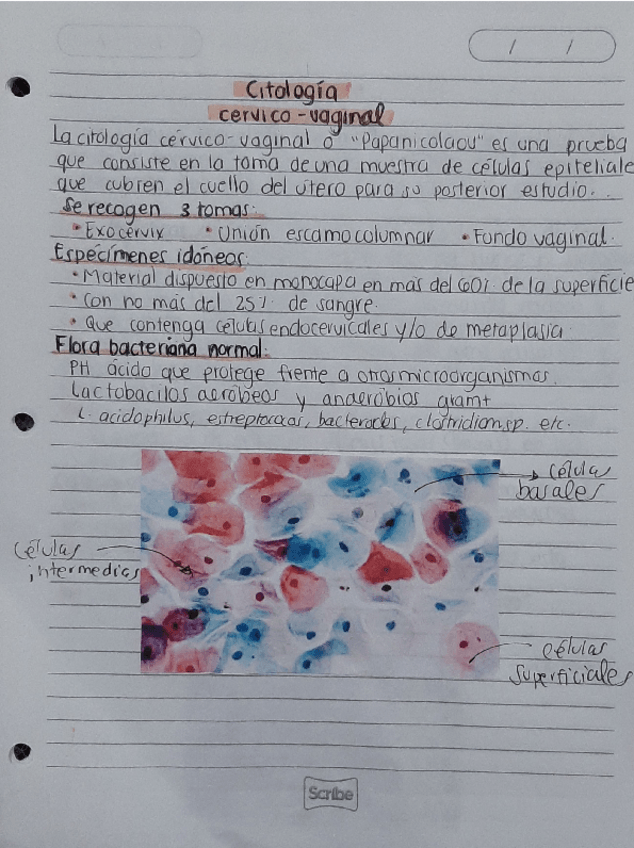 Citología
cervico-vaginal
La citología cérvico-vaginal o "Papanicolaou" es una prueba
que consiste en la toma de una muestra de células epiteliale
que cubren el cuello del útero para su posterior estudio. .
Se recogen 3 tomas:
• Exocérvix • Unión escamocolumnar • Fondo vaginal.
Especímenes idóneos:
• Material dispuesto en monocapa en más del 60% de la superficie
• con no más del 25% de sangre.
• Que contenga células endocervicales y/o de metaplasia.
Flora bacteriana normal:
PH ácido que protege frente a otros microorganismos.
Lactobacilos aeróbeos y anaerobios gram+
L. acidophilus, estreptococos, bacteroides, clostridium sp. etc.
célula
basales
Células
intermedias
células
superficiales
Scribe